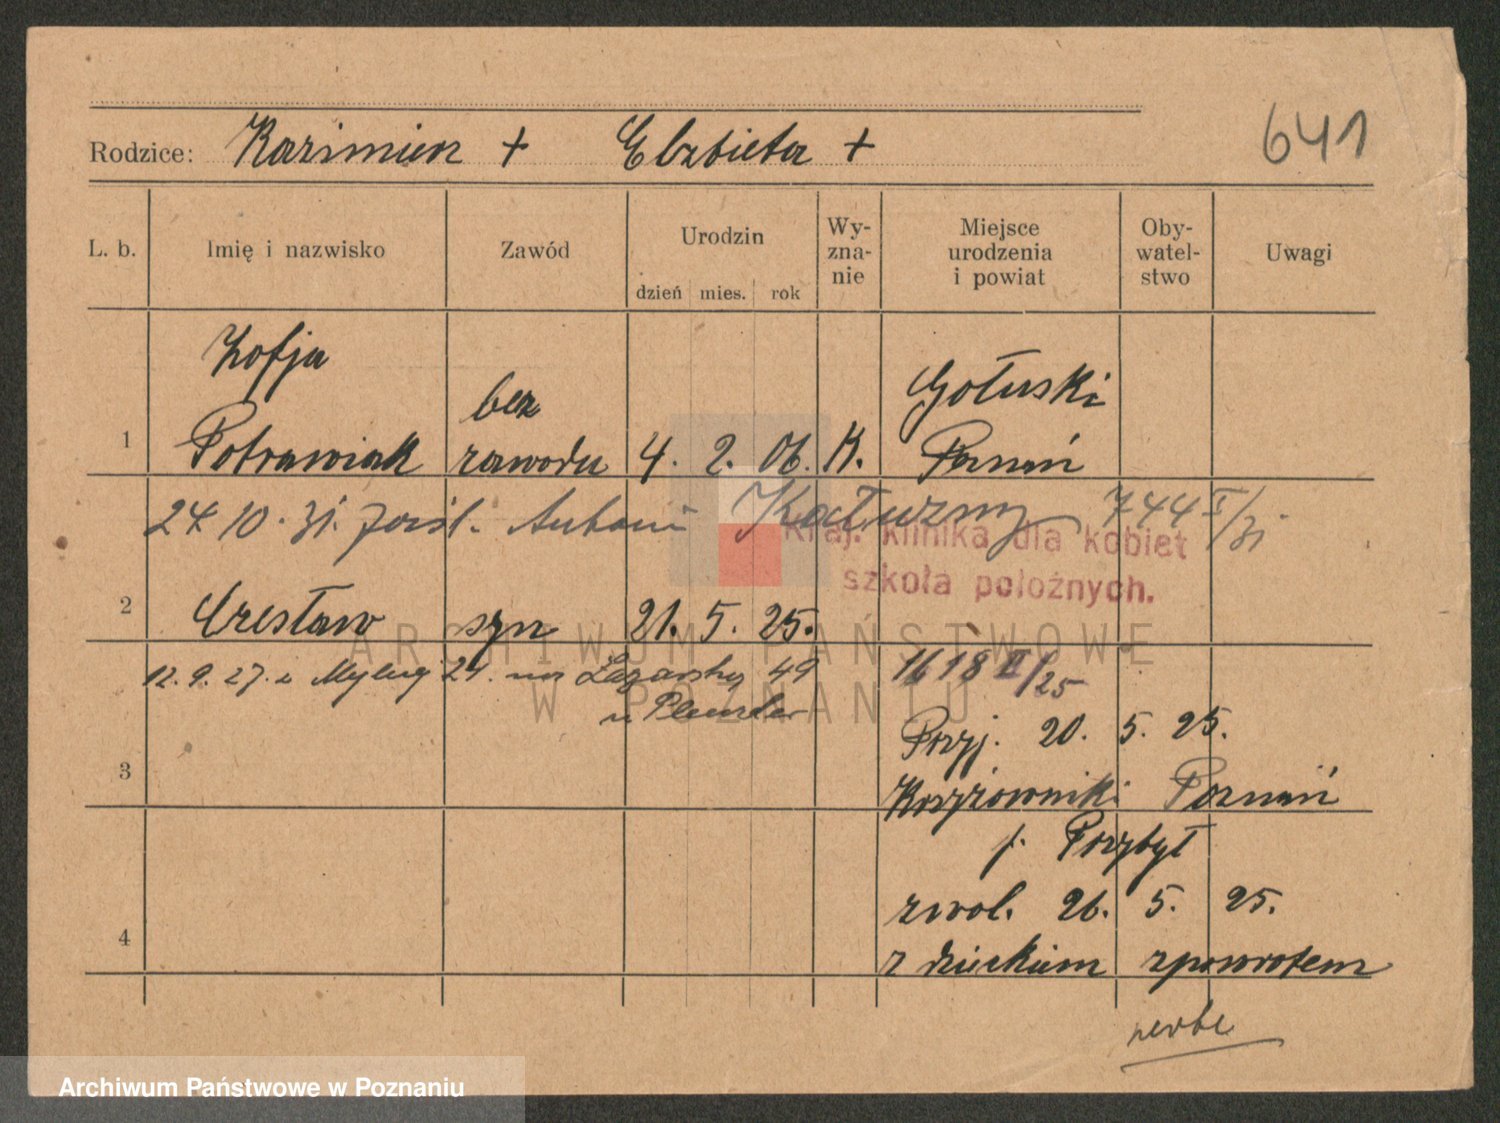 641
Rodzice: Kazimierz + Elżbieta +
L. b. Imię i nazwisko Zawód Urodzin dzień mies. rok Wy- zna- nie Miejsce urodzenia i powiat Oby- watel- stwo Uwagi
Zofja
bez
Gołuski
1 Potrawiak zawodu 4. 2. 06. K. Poznań
24 10. 31. zaśl. Antoni Kałużny 744 I/31
Kraj. klinika dla kobiet
szkoła położnych.
2 Czesław syn 21. 5. 25.
12. 9. 27. 24. Łazarska 49
1618 II/25
Przyj. 20. 5. 25.
3 Krzyżowniki Poznań
p. Przybył
zwol. 26. 5. 25.
4 z dzieckiem zpowrotem
ARCHIWUM PAŃSTWOWE
W POZNANIU
Archiwum Państwowe w Poznaniu